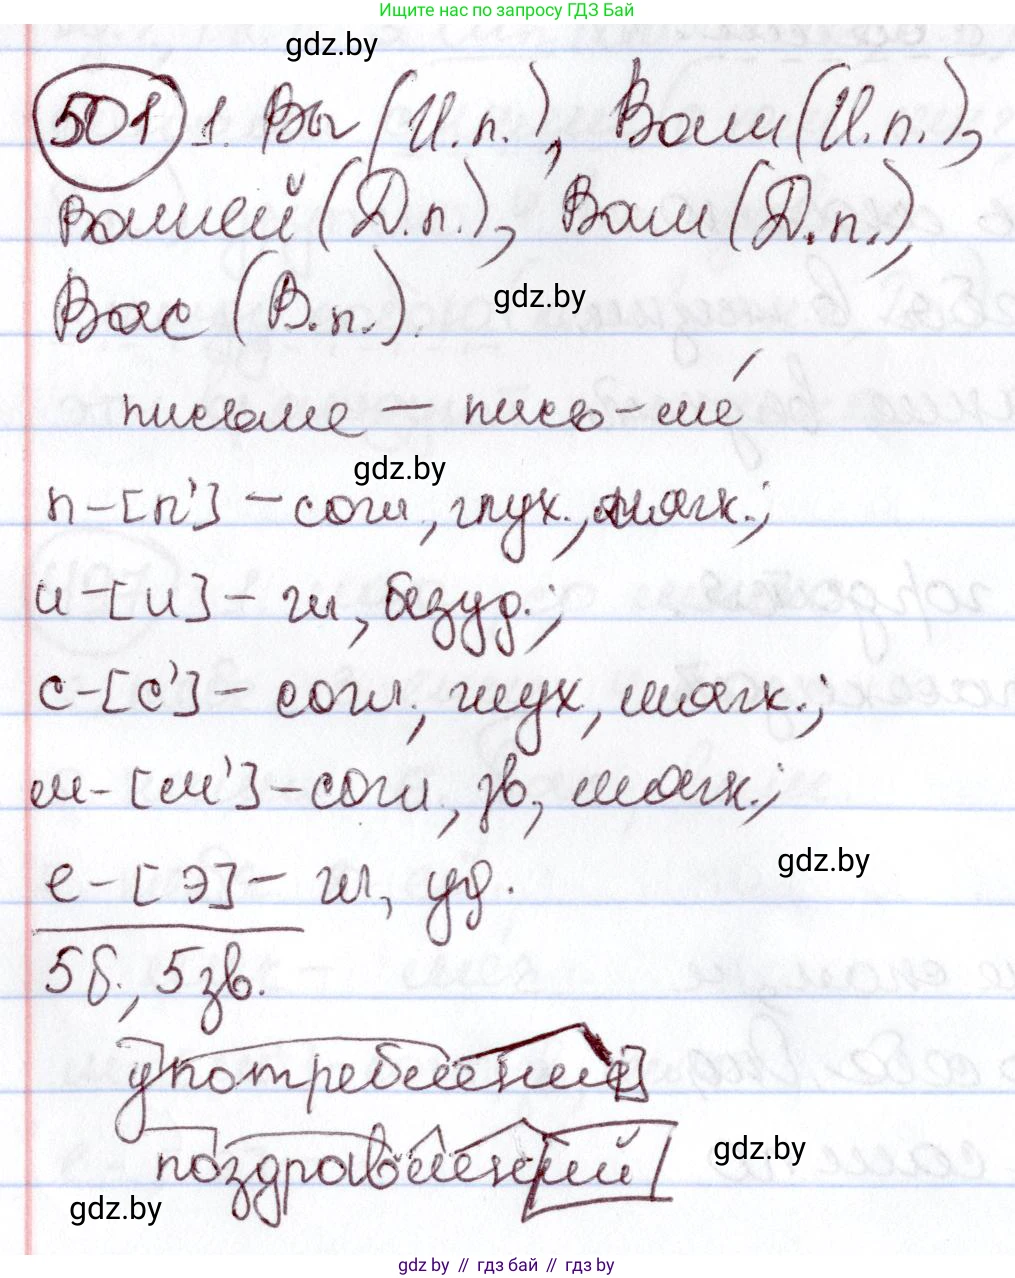 Ищите нас по запросу ГДЗ Бай
gdz.by
501 1. Вы (И.п.), Ваш (И.п.),
Вашей (Д.п.), Вам (Д.п.),
Вас (В.п.).
gdz.by
письме – пись-ме́
gdz.by
п – [п'] – согл., глух., мягк.;
и – [и] – гл., безуд.;
с – [с'] – согл., глух, мягк.;
м – [м'] – согл., зв., мягк.;
gdz.by
е – [э] – гл., уд.
5 б., 5 зв.
употребление
поздравлений
gdz.by
gdz.by
gdz.by // гдз бай // gdz.by